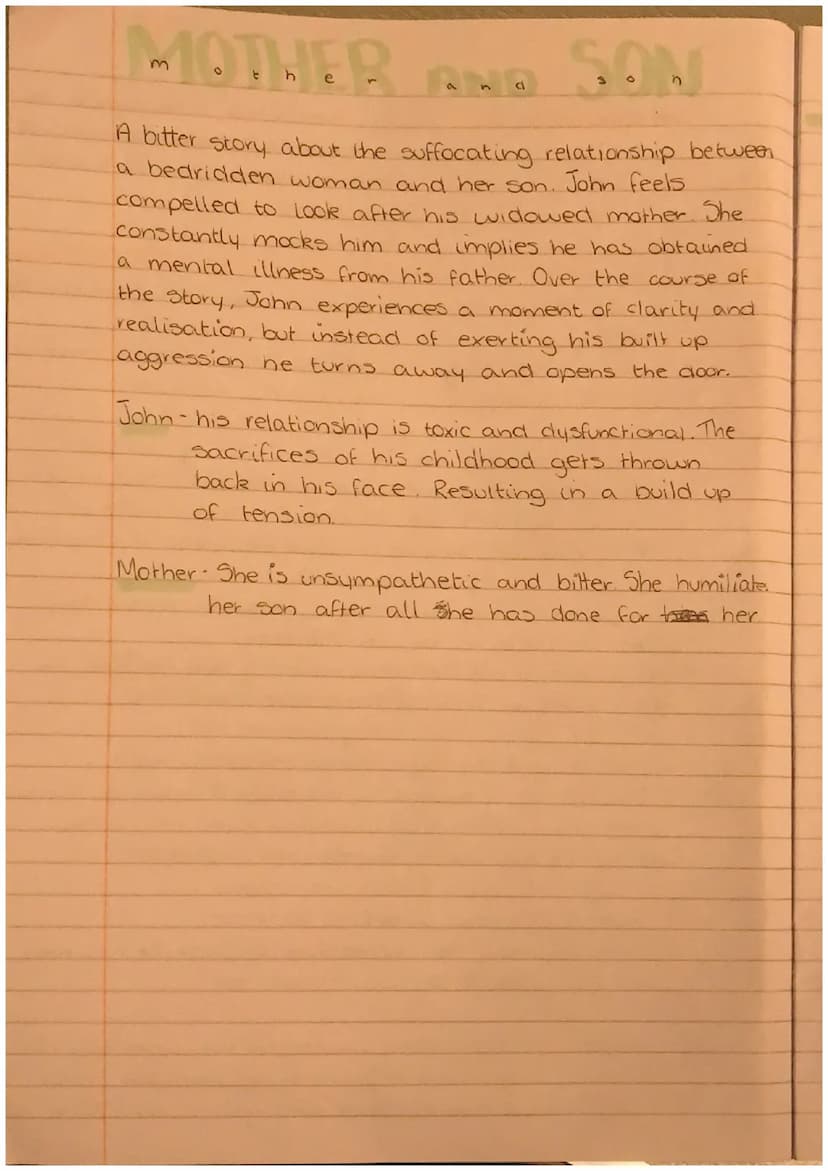 MOTHER AND SON
mother and son
A bitter story about the suffocating relationship between
a bedridden woman and her son. John feels
compelled to look after his widowed mother. She
constantly mocks him and implies he has obtained
a mental illness from his father. Over the course of
the story, John experiences a moment of clarity and
realisation, but instead of exerting his built up
aggression he turns away and opens the door.
John - his relationship is toxic and dysfunctional. The
sacrifices of his childhood gets thrown
back in his face. Resulting in a build up
of tension.
Mother - She is unsympathetic and bitter. She humiliate.
her son after all she has done for her